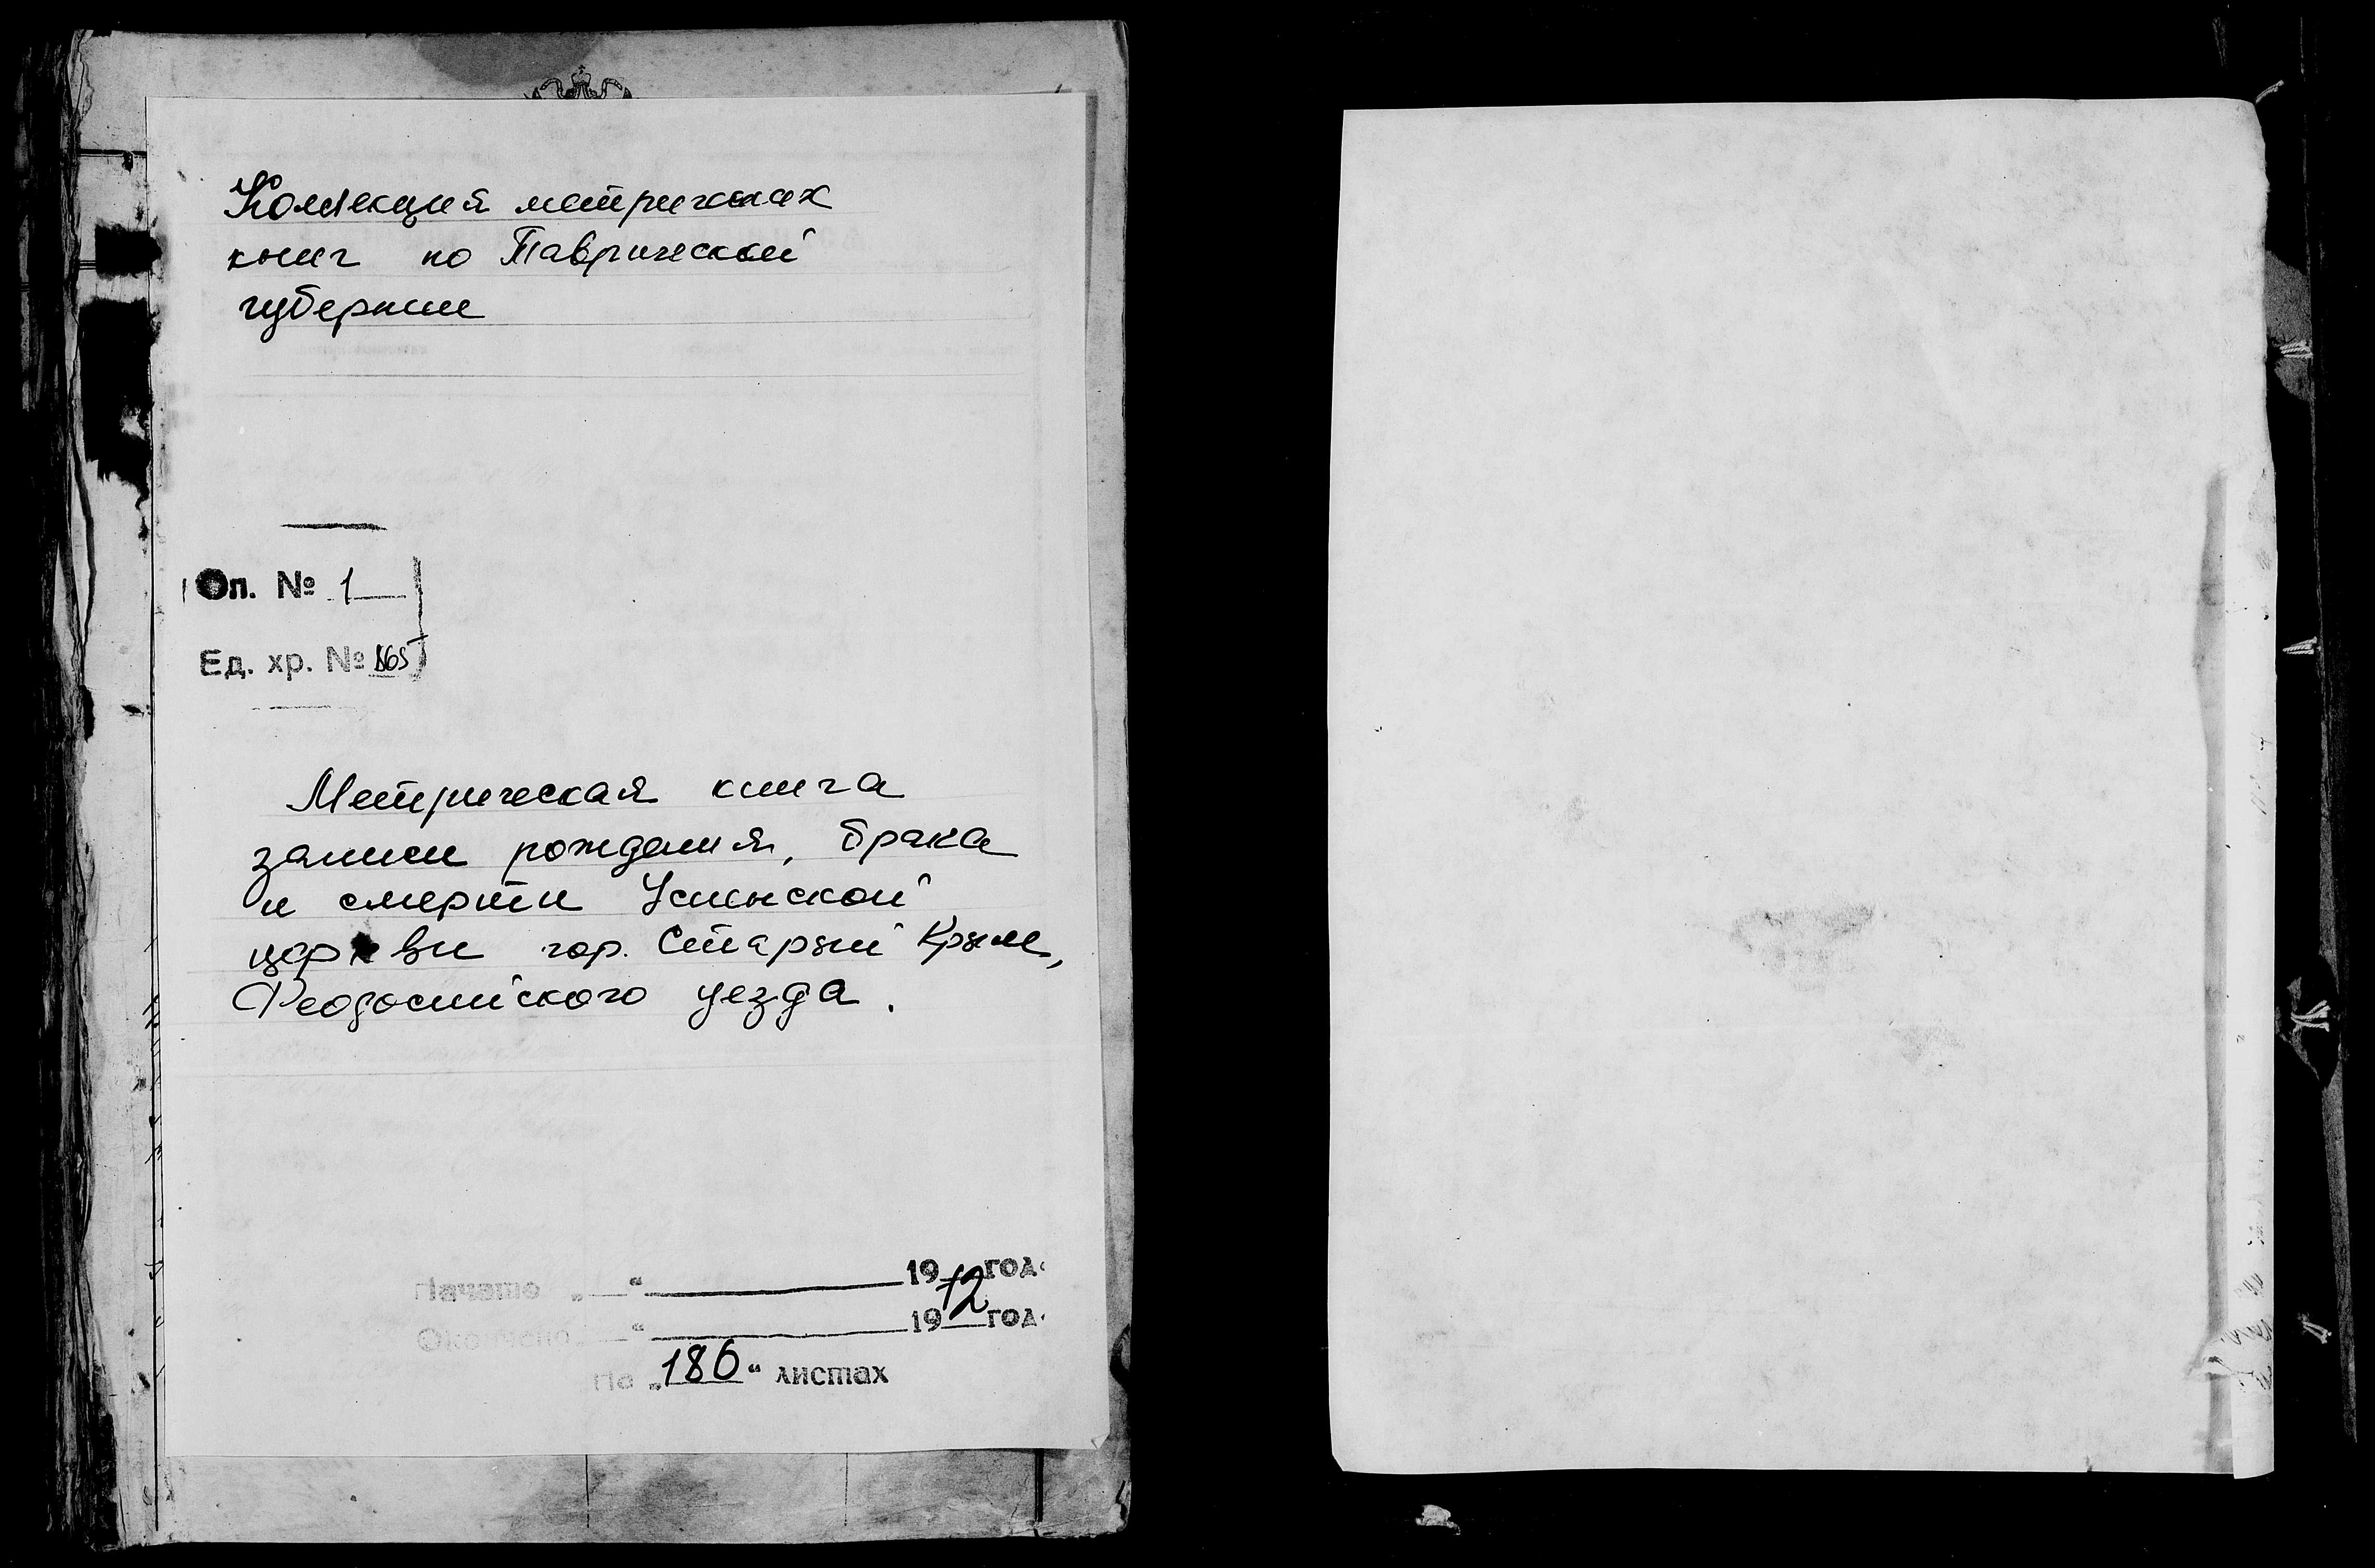 Коллекция метричных
книг по Таврической
губернии
Оп. № 1
Ед. хр. №
Метрическая книга
записи рождения, брака
и смерти Успенской
церкви гор. Старый Крым,
Феодосийского уезда.
Начато „ “ 1912 год
Окончено “ 19 год
На „186“ листах